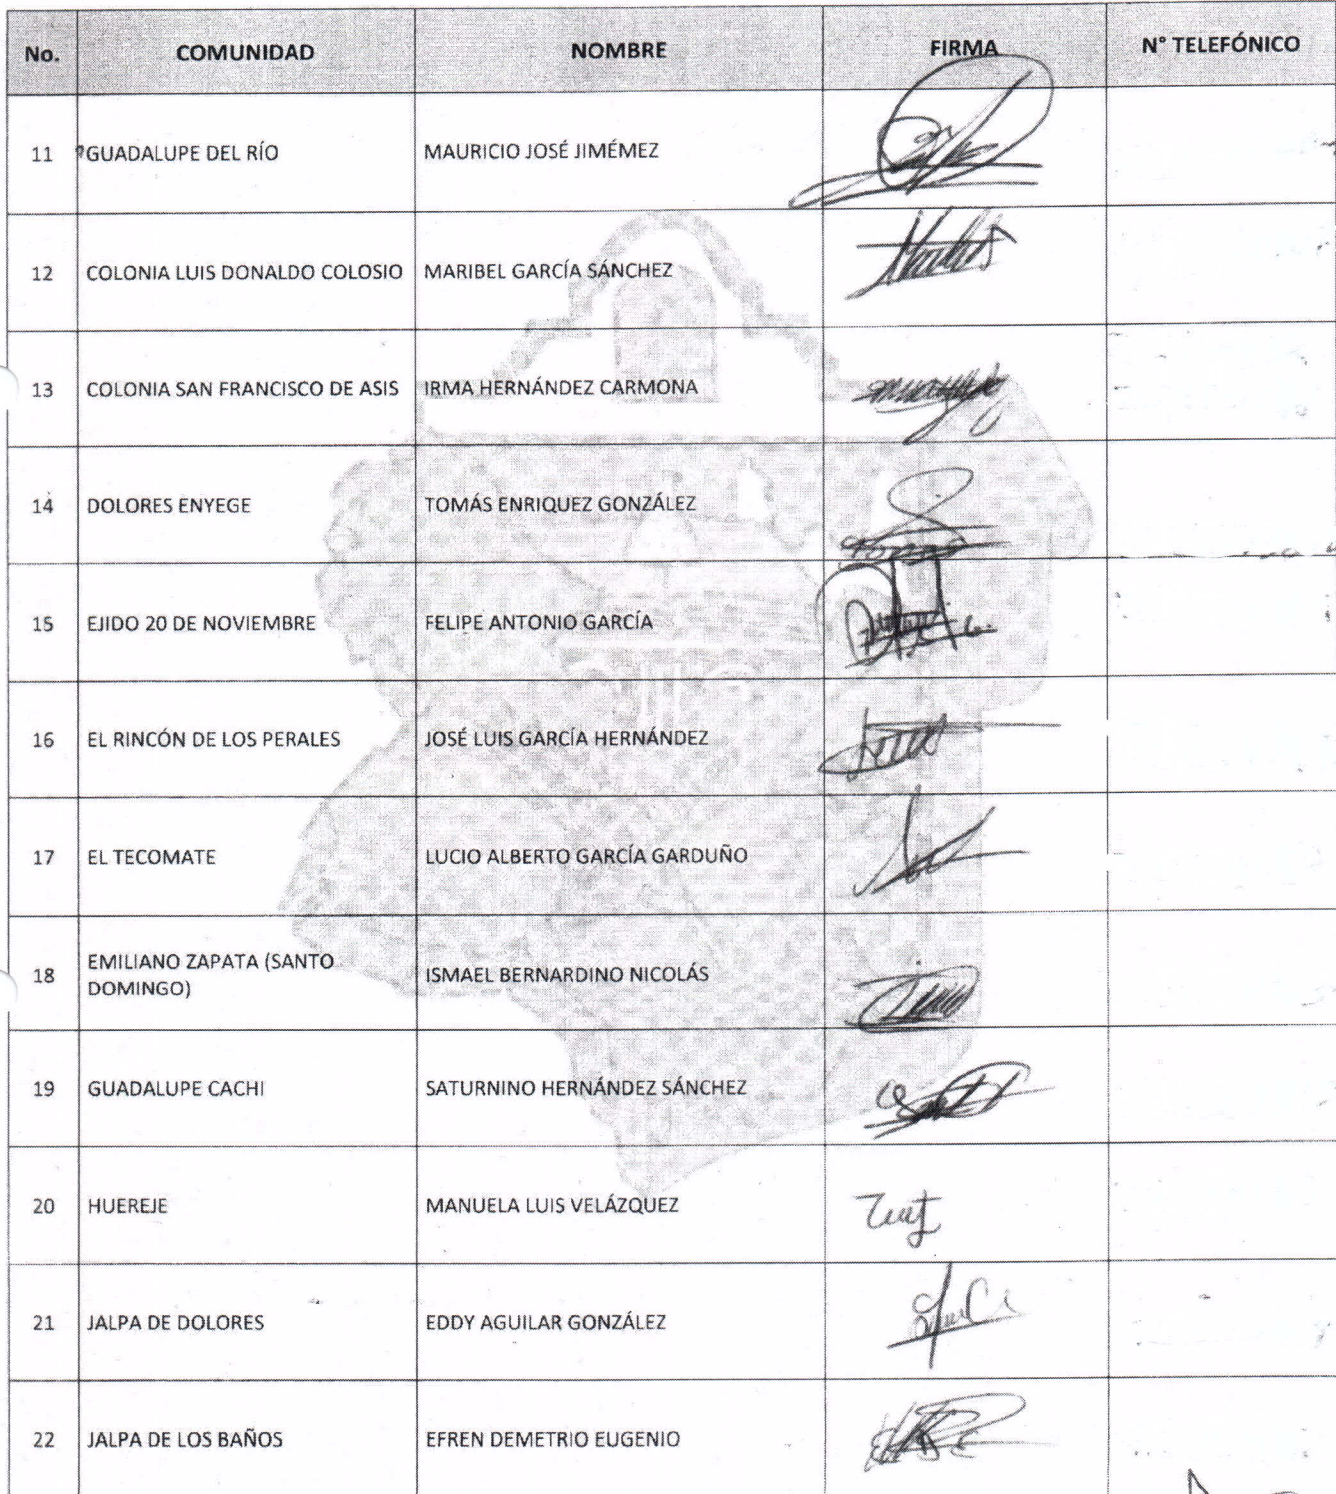 No. COMUNIDAD NOMBRE FIRMA N° TELEFÓNICO
11 GUADALUPE DEL RÍO MAURICIO JOSÉ JIMÉMEZ
12 COLONIA LUIS DONALDO COLOSIO MARIBEL GARCÍA SÁNCHEZ
13 COLONIA SAN FRANCISCO DE ASIS IRMA HERNÁNDEZ CARMONA
14 DOLORES ENYEGE TOMÁS ENRIQUEZ GONZÁLEZ
15 EJIDO 20 DE NOVIEMBRE FELIPE ANTONIO GARCÍA
16 EL RINCÓN DE LOS PERALES JOSÉ LUIS GARCÍA HERNÁNDEZ
17 EL TECOMATE LUCIO ALBERTO GARCÍA GARDUÑO
18 EMILIANO ZAPATA (SANTO
DOMINGO) ISMAEL BERNARDINO NICOLÁS
19 GUADALUPE CACHI SATURNINO HERNÁNDEZ SÁNCHEZ
20 HUEREJE MANUELA LUIS VELÁZQUEZ
21 JALPA DE DOLORES EDDY AGUILAR GONZÁLEZ
22 JALPA DE LOS BAÑOS EFREN DEMETRIO EUGENIO